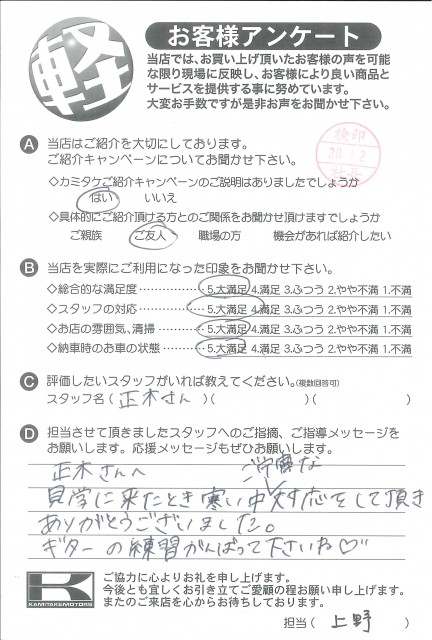 軽
お客様アンケート
当店では、お買い上げ頂いたお客様の声を可能
な限り現場に反映し、お客様により良い商品と
サービスを提供する事に努めています。
大変お手数ですが是非お声をお聞かせ下さい。
A 当店はご紹介を大切にしております。
ご紹介キャンペーンについてお聞かせ下さい。
検印
30.1.2
社長
◇カミタケご紹介キャンペーンのご説明はありましたでしょうか
はい いいえ
◇具体的にご紹介頂ける方とのご関係をお聞かせ頂けますでしょうか
ご親族 ご友人 職場の方 機会があれば紹介したい
B 当店を実際にご利用になった印象をお聞かせ下さい。
◇総合的な満足度……………5.大満足 4.満足 3.ふつう 2.やや不満 1.不満
◇スタッフの対応……………5.大満足 4.満足 3.ふつう 2.やや不満 1.不満
◇お店の雰囲気、清掃…………5.大満足 4.満足 3.ふつう 2.やや不満 1.不満
◇納車時のお車の状態…………5.大満足 4.満足 3.ふつう 2.やや不満 1.不満
C 評価したいスタッフがいれば教えてください。(複数回答可)
スタッフ名(正木さん)( )( )
D 担当させて頂きましたスタッフへのご指摘、ご指導メッセージを
お願いします。応援メッセージもぜひお願いします。
正木さんへ ご丁寧な
見学に来たとき寒い中対応をして頂き
ありがとうございました。
ギターの練習がんばって下さいね♡
K
KAMITAKE MOTORS
ご協力に心よりお礼を申し上げます。
今後とも宜しくお引き立てご愛顧の程お願い申し上げます。
またのご来店を心からお待ちしております。
担当( 上野 )